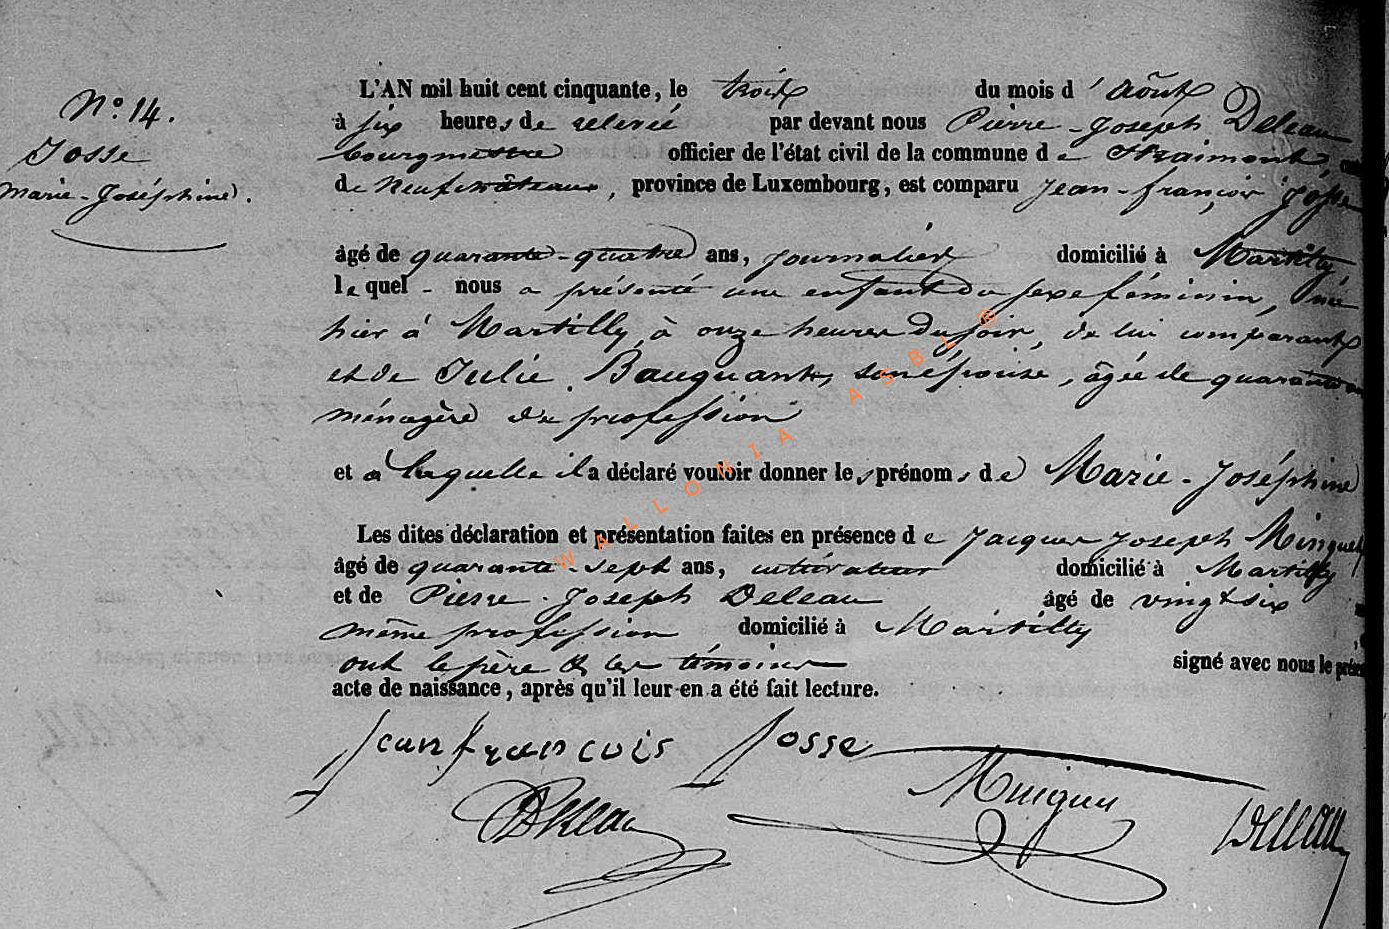 N.º 14.
Josse
Marie-Joséphine.
L'AN mil huit cent cinquante, le trois du mois d'Août
à six heures de relevée par devant nous Pierre-Joseph Deleau
bourgmestre officier de l'état civil de la commune de Straimont
de Neufchâteau, province de Luxembourg, est comparu Jean-françois Josse
âgé de quarante-quatre ans, journalier domicilié à Martilly,
lequel nous a présenté une enfant du sexe féminin, née
hier à Martilly, à onze heures du soir, de lui comparant
et de Julie Bauquant, son épouse, âgée de quarante
ménagère de profession
et à laquelle il a déclaré vouloir donner les prénoms de Marie-Joséphine
Les dites déclaration et présentation faites en présence de Jacques Joseph Minguet
âgé de quarante-sept ans, cultivateur domicilié à Martilly
et de Pierre-Joseph Deleau âgé de vingt six
même profession domicilié à Martilly
ont le père & les témoins signé avec nous le
acte de naissance, après qu'il leur en a été fait lecture.
Jean françois Josse
Deleau Minguet Deleau
WALLONIA ASBL ©